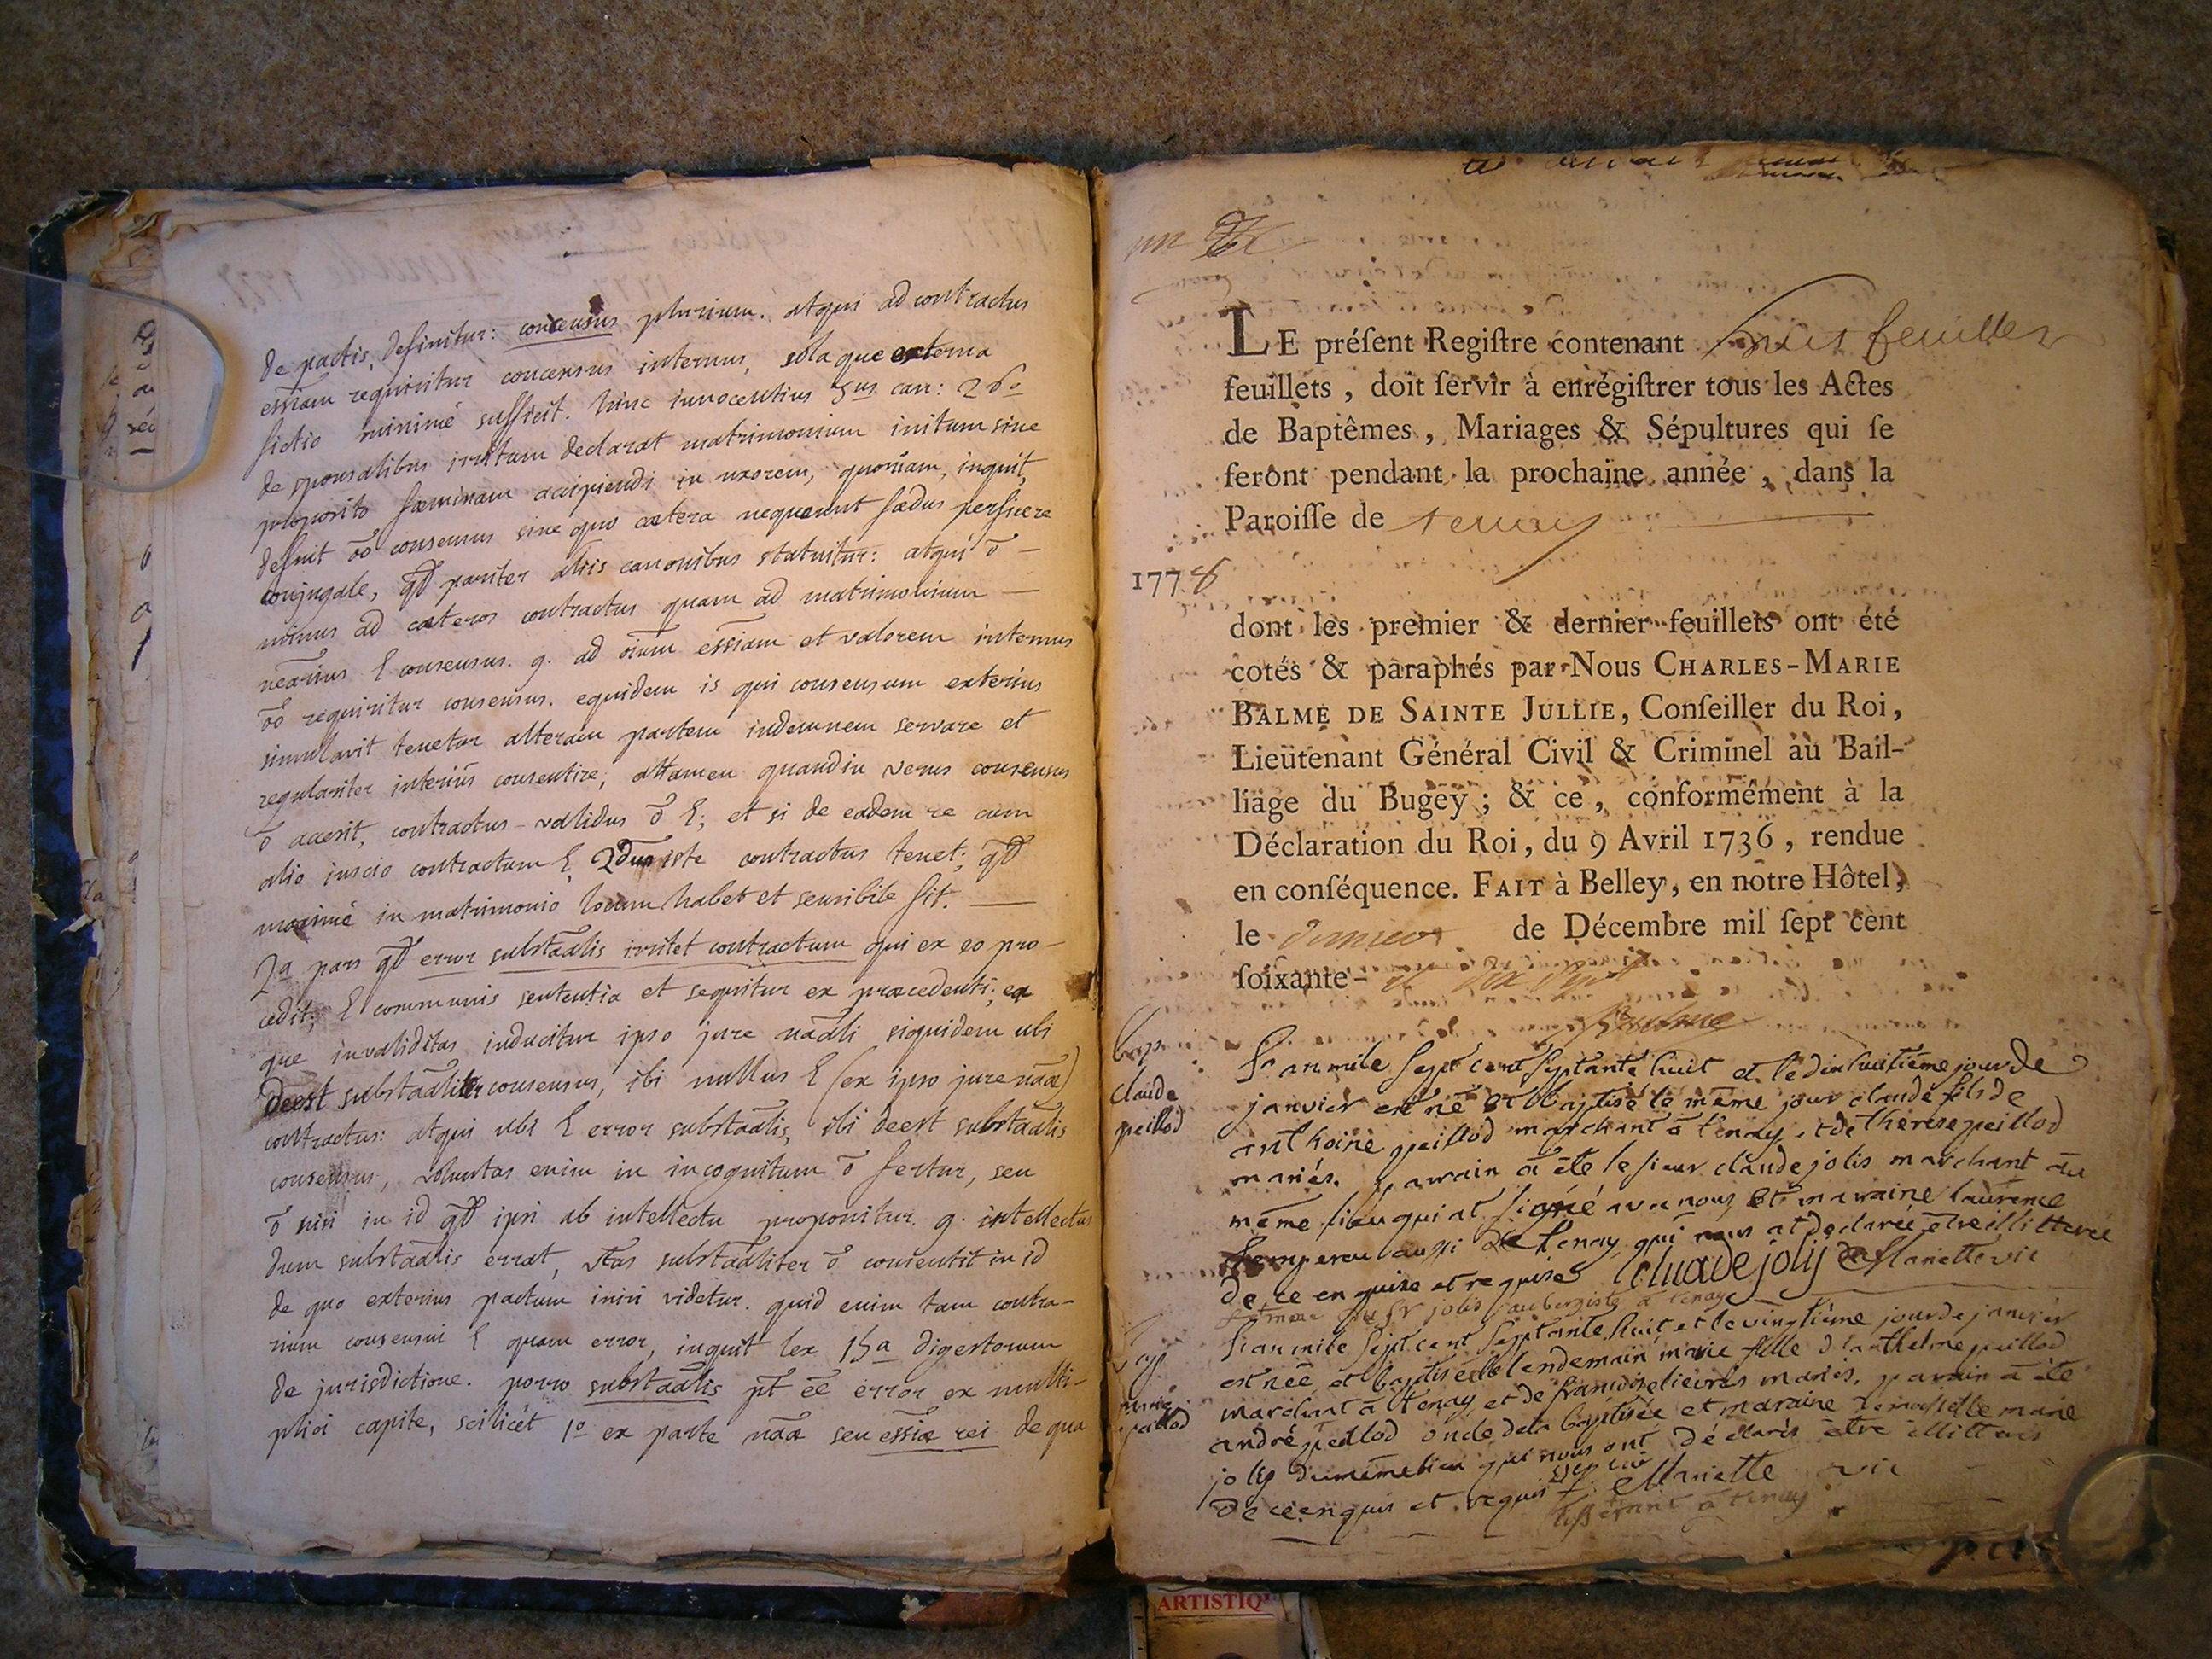 de pactis, definitur: concensus plurium. atqui ad contractus
essiam requiritur concensus internus, sola que externa
fictio minimè sufficit. hinc innocentius 3us can: 26o
de sponsalibus irritum declarat matrimonium initum sine
proposito fœminam accipiendi in uxorem, quoniam, inquit,
defuit oo consensus sine quo cætera nequeunt fœdus perficere
conjugale, qd pariter aliis canonibus statuitur: atqui o —
minus ad cæteros contractus quam ad matrimonium —
necarius E consensus. g. ad oium essiam et valorem internus
oo requiritur consensus. equidem is qui consensum exterius
simulavit tenetur alteram partem indemnem servare et
regulariter interiùs consentire; attamen quandiu verus consensus
o accerit, contractus validus o E; et si de eadem re cum
alio inscio contractum E, 2dus iste contractus tenet; qd
maximè in matrimonio locum habet et sensibile fit.
2a pars qd error substaalis irritet contractum qui ex eo pro-
cedit; E communis sententia et sequitur ex præcedenti; ea
que invaliditas inducitur ipso jure naali siquidem ubi
deest substaaliter consensus, ibi nullus E (ex ipso jure naæ)
contractus: atqui ubi E error substaalis, ibi deest substaalis
consensus, voluntas enim in incognitum o fertur, seu
o nisi in id qd ipsi ab intellectu proponitur. g. intellectus
dum substaalis errat, vtas substaaliter o consentit in id
de quo exterius pactum iniri videtur. quid enim tam contra-
rium consensui E quam error, inquit lex 15a digestorum
de jurisdictione. porro substaalis pt ee error ex multi-
plici capite, scilicèt 1o ex parte naæ seu essiæ rei de qua
un
LE préſent Regiſtre contenant feuilles
feuillets, doit ſervir à enrégiſtrer tous les Actes
de Baptêmes, Mariages & Sépultures qui ſe
feront pendant la prochaine année, dans la
Paroiſſe de tenay
1778
dont les premier & dernier feuillets ont été
cotés & paraphés par Nous CHARLES-MARIE
BALME DE SAINTE JULLIE, Conſeiller du Roi,
Lieutenant Général Civil & Criminel au Bail-
liage du Bugey; & ce, conformément à la
Déclaration du Roi, du 9 Avril 1736, rendue
en conſéquence. FAIT à Belley, en notre Hôtel,
le dernier de Décembre mil ſept cent
ſoixante- et dix sept
Balme
bap.
claude
peillod
L'an mile sept cent septante huit et le dix huitième jour de
janvier est né et baptisé le même jour claude fils de
anthoine peillod marchant à tenay et de thérèse peillod
mariés. parrain à été le sieur claude jolis marchant au
même lieu qui at signé avec nous et maraine laurence
tempereu aussi de tenay qui nous at declarée etre illitterée
de ce enquise et requise claude jolij Mariette vic
aubergiste à tenay
bap.
marie
peillod
L'an mile sept cent septante huit et le vingtième jour de janvier
est née et baptisée le lendemain marie fille d'anthelme peillod
marchant à tenay et de francoise lievres mariés, parain à été
andré peillod oncle de la baptisée et maraine demoiselle marie
joly du même lieu qui nous ont déclarés être illitterés
de ce enquis et requis Mariette vic
tisserant à tenay
ARTISTIQ